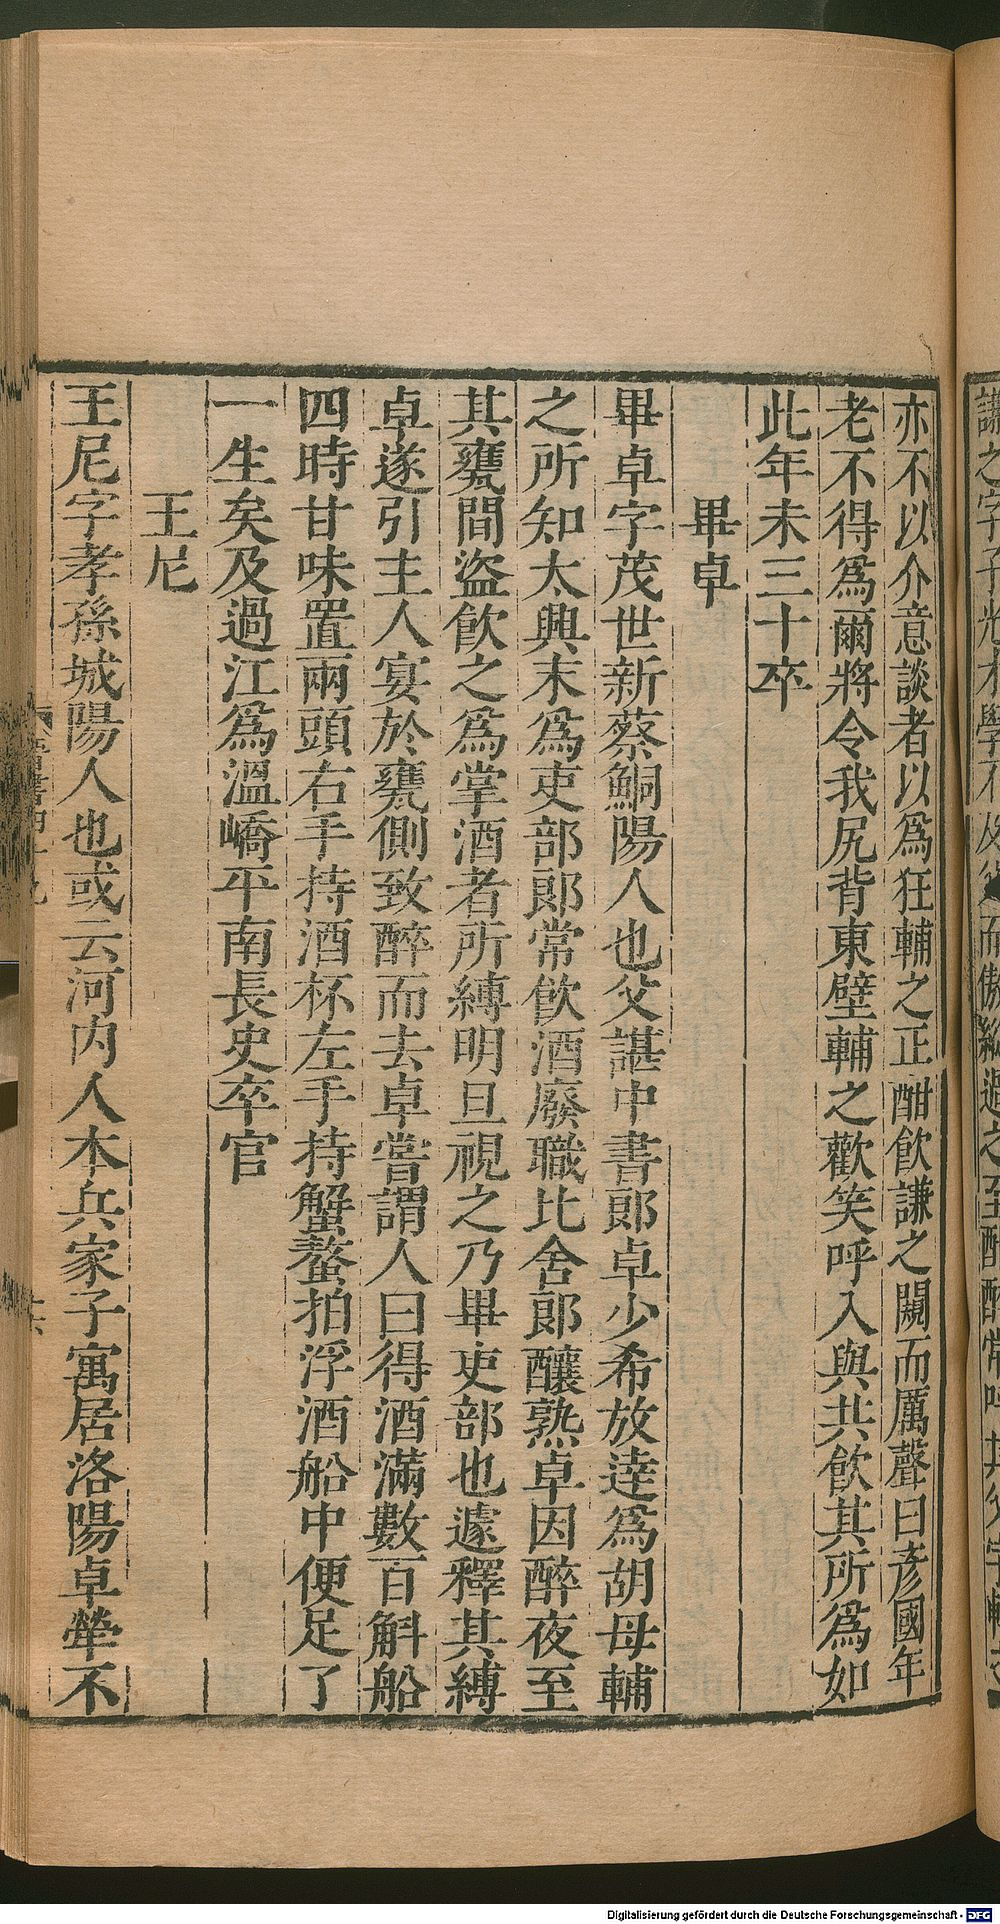 亦不以介意談者以爲狂輔之正酣飲謙之闚而厲聲曰彥國年
老不得爲爾將令我尻背東壁輔之歡笑呼入與共飲其所爲如
此年未三十卒
畢卓
畢卓字茂世新蔡鮦陽人也父諶中書郎卓少希放達爲胡母輔
之所知太興末爲吏部郎常飲酒廢職比舍郎釀熟卓因醉夜至
其甕間盜飲之爲掌酒者所縛明旦視之乃畢吏部也遽釋其縛
卓遂引主人宴於甕側致醉而去卓嘗謂人曰得酒滿數百斛船
四時甘味置兩頭右手持酒杯左手持蟹螯拍浮酒船中便足了
一生矣及過江爲溫嶠平南長史卒官
王尼
王尼字孝孫城陽人也或云河内人本兵家子寓居洛陽卓犖不
Digitalisierung gefördert durch die Deutsche Forschungsgemeinschaft - DFG